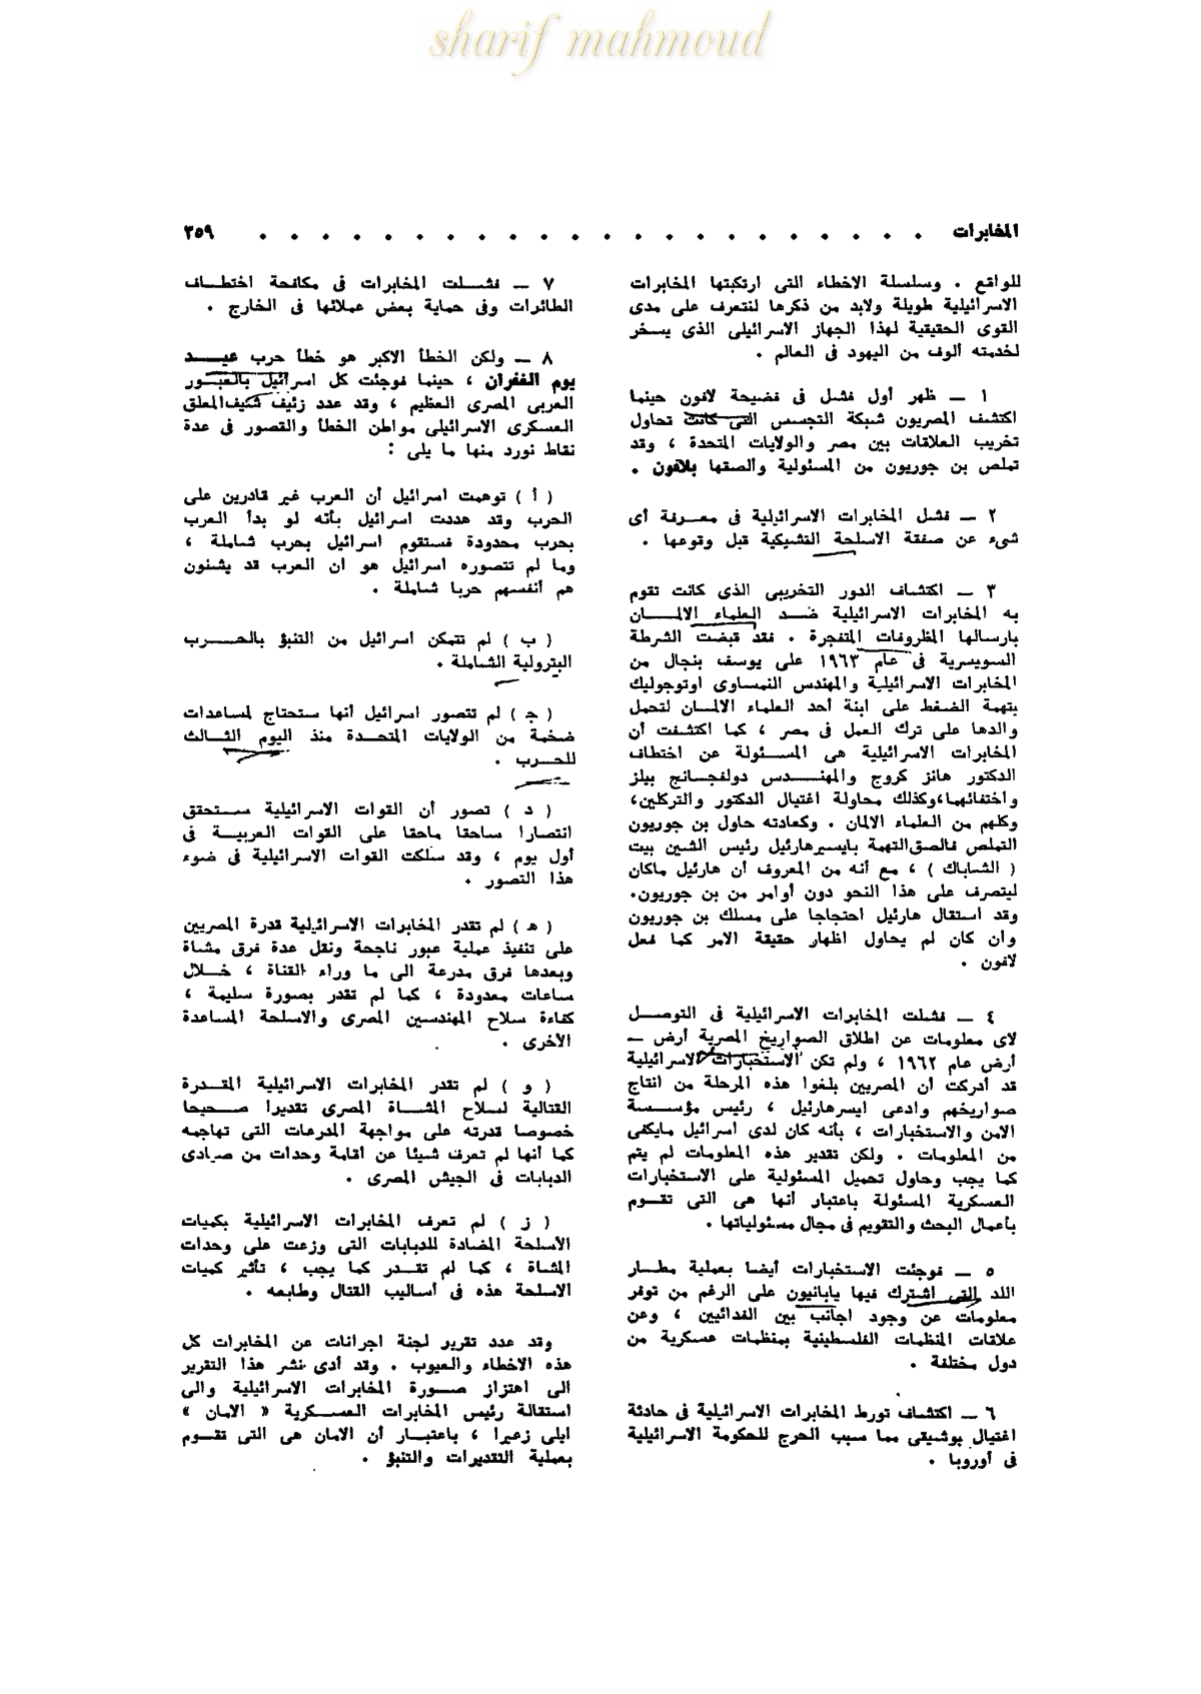 sharif mahmoud
المخابرات . . . . . . . . . . . . . . . . . . . . . . ٣٥٩
للواقع . وسلسلة الاخطاء التى ارتكبتها المخابرات
الاسرائيلية طويلة ولابد من ذكرها لنتعرف على مدى
القوى الحقيقية لهذا الجهاز الاسرائيلى الذى يسخر
لخدمته ألوف من اليهود فى العالم .
١ — ظهر أول فشل فى فضيحة لافون حينما
اكتشف المصريون شبكة التجسس التى كانت تحاول
تخريب العلاقات بين مصر والولايات المتحدة ، وقد
تملص بن جوريون من المسئولية وألصقها بلافون .
٢ — فشل المخابرات الاسرائيلية فى معـرفة أى
شىء عن صفقة الاسلحة التشيكية قبل وقوعها .
٣ — اكتشاف الدور التخريبى الذى كانت تقوم
به المخابرات الاسرائيلية ضـد العلماء الالمـــان
بارسالها المظروفات المتفجرة . فقد قبضت الشرطة
السويسرية فى عام ١٩٦٣ على يوسف بنجال من
المخابرات الاسرائيلية والمهندس النمساوى اوتوجوليك
بتهمة الضغط على ابنة أحد العلماء الالمــان لتحمل
والدها على ترك العمل فى مصر ، كما اكتشفت أن
المخابرات الاسرائيلية هى المســئولة عن اختطاف
الدكتور هانز كروج والمهنـــدس دولفجــانج بيلز
واختفائهما،وكذلك محاولة اغتيال الدكتور والتركلين،
وكلهم من العلماء الالمان . وكعادته حاول بن جوريون
التملص فالصق التهمة بايسيرهارئيل رئيس الشين بيت
( الشاباك ) ، مع أنه من المعروف أن هارئيل ماكان
ليتصرف على هذا النحو دون أوامر من بن جوريون.
وقد استقال هارئيل احتجاجا على مسلك بن جوريون
وأن كان لم يحاول اظهار حقيقة الامر كما فعل
لافون .
٤ — فشلت المخابرات الاسرائيلية فى التوصــل
لاى معلومات عن اطلاق الصواريخ المصرية أرض —
أرض عام ١٩٦٢ ، ولم تكن الاستخبارات الاسرائيلية
قد أدركت أن المصريين بلغوا هذه المرحلة من انتاج
صواريخهم وادعى ايسرهارئيل ، رئيس مؤســسة
الامن والاستخبارات ، بأنه كان لدى اسرائيل مايكفى
من المعلومات . ولكن تقدير هذه المعلومات لم يتم
كما يجب وحاول تحميل المسئولية على الاستخبارات
العسكرية المسئولة باعتبار أنها هى التى تقــوم
بأعمال البحث والتقويم فى مجال مسئولياتها .
٥ — فوجئت الاستخبارات أيضا بعملية مطــار
اللد التى اشترك فيها يابانيون على الرغم من توفر
معلومات عن وجود اجانب بين الفدائيين ، وعن
علاقات المنظمات الفلسطينية بمنظمات عسكرية من
دول مختلفة .
٦ — اكتشاف تورط المخابرات الاسرائيلية فى حادثة
اغتيال بوشيقى مما سبب الحرج للحكومة الاسرائيلية
فى أوروبا .
٧ — فشــلت المخابرات فى مكافحة اختطــاف
الطائرات وفى حماية بعض عملائها فى الخارج .
٨ — ولكن الخطأ الاكبر هو خطأ حرب عيـــد
يوم الغفران ، حينما فوجئت كل اسرائيل بالعبــور
العربى المصرى العظيم ، وقد عدد زئيف شيف المعلق
العسكرى الاسرائيلى مواطن الخطأ والقصور فى عدة
نقاط نورد منها ما يلى :
( أ ) توهمت اسرائيل أن العرب غير قادرين على
الحرب وقد هددت اسرائيل بأنه لو بدأ العرب
بحرب محدودة فستقوم اسرائيل بحرب شاملة ،
وما لم تتصوره اسرائيل هو ان العرب قد يشنون
هم أنفسهم حربا شاملة .
( ب ) لم تتمكن اسرائيل من التنبؤ بالحـــرب
البترولية الشاملة .
( جـ ) لم تتصور اسرائيل أنها ستحتاج لمساعدات
ضخمة من الولايات المتحــدة منذ اليوم الثــالث
للحــرب .
( د ) تصور أن القوات الاسرائيلية ســتحقق
انتصارا ساحقا ماحقا على القوات العربيـــة فى
أول يوم ، وقد سلكت القوات الاسرائيلية فى ضوء
هذا التصور .
( هـ ) لم تقدر المخابرات الاسرائيلية قدرة المصريين
على تنفيذ عملية عبور ناجحة ونقل عدة فرق مشاة
وبعدها فرق مدرعة الى ما وراء القناة ، خــلال
ساعات معدودة ، كما لم تقدر بصورة سليمة ،
كفاءة سلاح المهندسين المصرى والاسلحة المساعدة
الاخرى .
( و ) لم تقدر المخابرات الاسرائيلية المقــدرة
القتالية لسلاح المشــاة المصرى تقديرا صــحيحا
خصوصا قدرته على مواجهة المدرعات التى تهاجمه
كما أنها لم تعرف شيئا عن أقامة وحدات من صيادى
الدبابات فى الجيش المصرى .
( ز ) لم تعرف المخابرات الاسرائيلية بكميات
الأسلحة المضادة للدبابات التى وزعت على وحدات
المشاة ، كما لم تقــدر كما يجب ، تأثير كميات
الاسلحة هذه فى أساليب القتال وطابعه .
وقد عدد تقرير لجنة اجرانات عن المخابرات كل
هذه الاخطاء والعيوب . وقد أدى نشر هذا التقرير
الى اهتزاز صــورة المخابرات الاسرائيلية والى
استقالة رئيس المخابرات العســكرية « الامان »
ايلى زعيرا ، باعتبــار أن الامان هى التى تقــوم
بعملية التقديرات والتنبؤ .